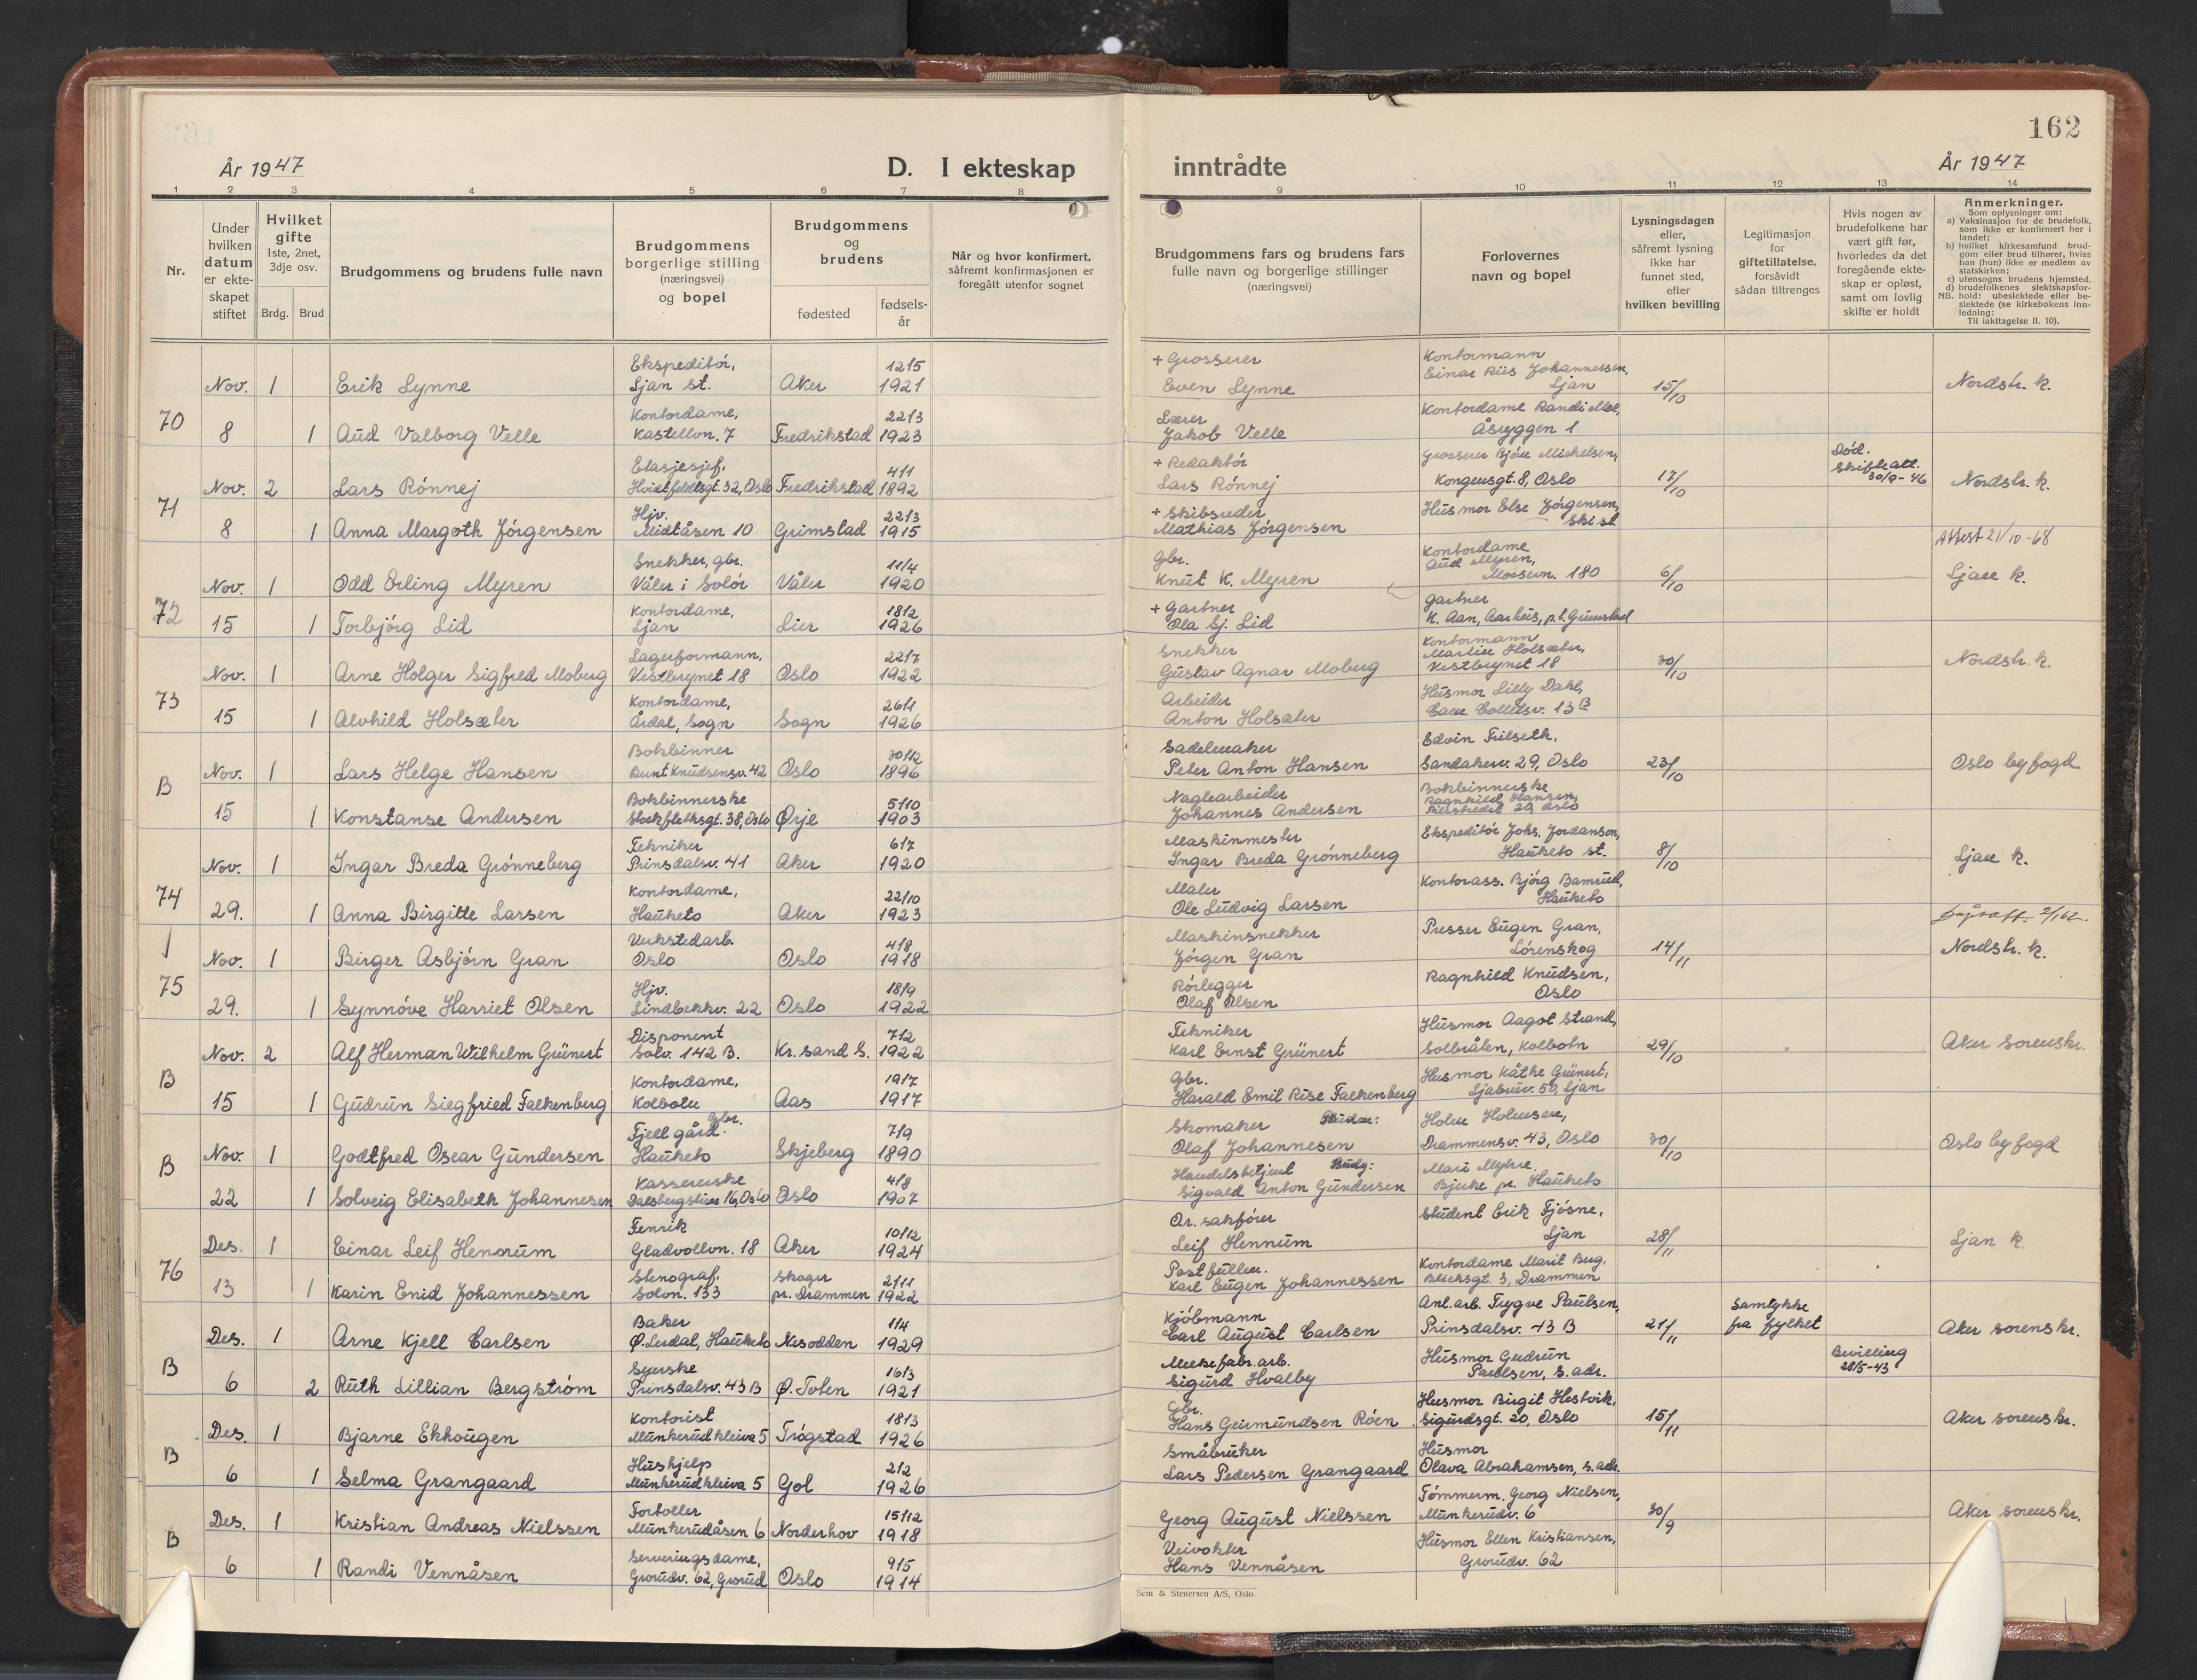 162
År 1947
D. I ekteskap inntrådte
År 1947
1 2 3 4 5 6 7 8 9 10 11 12 13 14
Nr.
Under hvilken datum er ekteskapet stiftet
Hvilket gifte 1ste, 2net, 3dje osv.
Brdg. Brud
Brudgommens og brudens fulle navn
Brudgommens borgerlige stilling (næringsvei) og bopel
Brudgommens og brudens
fødested
fødselsår
Når og hvor konfirmert, såfremt konfirmasjonen er foregått utenfor sognet
Brudgommens fars og brudens fars fulle navn og borgerlige stillinger (næringsvei)
Forlovernes navn og bopel
Lysningsdagen eller, såfremt lysning ikke har funnet sted, efter hvilken bevilling
Legitimasjon for giftetillatelse. forsåvidt sådan tiltrenges
Hvis nogen av brudefolkene har vært gift før, hvorledes da det foregående ekteskap er opløst, samt om lovlig skifte er holdt
Anmerkninger.
Som oplysninger om:
a) Vaksinasjon for de brudefolk, som ikke er konfirmert her i landet;
b) hvilket kirkesamfund brudgom eller brud tilhører, hviss han (hun) ikke er medlem av statskirken;
c) utensogns brudens hjemsted.
d) brudefolkenes slektskapsforhold: ubeslektede eller beslektede (se kirkebokens innledning:
NB.
Til iakttagelse II. 10).
70 Nov. 1 Erik Lynne Ekspeditör, Ljan st. Aker 12/5 1921 + Grosserer Even Lynne Kontormann Einar Riis Johannessen, Ljan 15/10 Nordstr. k.
8 1 Aud Valborg Velle Kontordame, Kastellvn. 7 Fredrikstad 22/3 1923 Lærer Jakob Velle Kontordame Randi Moe, Åsryggen 1
71 Nov. 2 Lars Rönnej Etasjesjef. Hvidtfeldtsgt. 32, Oslo Fredrikstad 4/1 1892 + Redaktör Lars Rönnej Grosserer Björn Michelsen, Kongensgt. 8, Oslo 17/10 Död. Skifteatt. 30/9-46 Nordstr. k.
8 1 Anna Margoth Jörgensen Hjv. Midtåsen 10 Grimstad 22/3 1915 + Skibsreder Mathias Jörgensen Husmor Else Jörgensen, Ski st.
Attest 21/10-68
72 Nov. 1 Odd Erling Myren Snekker, gbr. Våler i Solör Våler 11/4 1920 Gbr. Knut K. Myren Kontordame Aud Myren, Mossevn. 180 6/10 Ljan k.
15 1 Torbjörg Lid Kontordame, Ljan Lier 18/2 1926 + Gartner Ola Sj. Lid Gartner K. Aan, Aarhus, p.t. Grimstad
73 Nov. 1 Arne Holger Sigfred Moberg Lagerformann, Vestbrynet 18 Oslo 22/7 1922 Snekker Gustav Agnar Moberg Kontormann Martin Holsæter, Vestbrynet 18 30/10 Nordstr. k.
15 1 Alvhild Holsæter Kontordame, Årdal, Sogn Sogn 26/1 1926 Arbeider Anton Holsæter Husmor Lilly Dahl, Cam. Colletsv. 13 B
B Nov. 1 Lars Helge Hansen Bokbinner Bunt Knudsensv. 42 Oslo 30/12 1896 Sadelmaker Peter Anton Hansen Edvin Fulseth, Sandakerv. 29, Oslo 23/10 Oslo byfogd
15 1 Konstanse Andersen Bokbinnerske Stockflethsgt. 38, Oslo Ørje 5/10 1903 Naglearbeider Johannes Andersen Bokbinnerske Ragnhild Hansen, Pilestredet 29, Oslo
74 Nov. 1 Ingar Breda Grönneberg Tekniker Prinsdalsv. 41 Aker 6/7 1920 Maskinmester Ingar Breda Grönneberg Ekspeditör Johs. Jordanson, Hauketo st. 8/10 Ljan k.
29. 1 Anna Birgitte Larsen Kontordame, Hauketo Aker 22/10 1923 Maler Ole Ludvig Larsen Kontorass. Björg Bamrud, Hauketo
75 Nov. 1 Birger Asbjörn Gran Verkstedarb. Oslo Oslo 4/8 1918 Maskinsnekker Jörgen Gran Presser Eugen Gran, Lörenskog 14/11 Nordstr. k.
29. 1 Synnöve Harriet Olsen Hjv. Lindbekkv. 22 Oslo 18/9 1922 Rörlegger Olaf Olsen Ragnhild Knudsen, Oslo
B Nov. 2 Alf Herman Wilhelm Grünert Disponent Solv. 142 B. Kr.sand S. 7/2 1922 Tekniker Karl Ernst Grünert Husmor Aagot Strand, Solbråten, Kolbotn 29/10 Aker sorenskr.
15 1 Gudrun Siegfried Falkenberg Kontordame, Kolbotn Aas 19/7 1917 Gbr. Harald Emil Rise Falkenberg Husmor Käthe Grünert, Ljabruv. 50, Ljan
B Nov. 1 Godtfred Oscar Gundersen Gbr. Fjell gård. Hauketo Skjeberg 7/9 1890 Skomaker Bruden: Olaf Johannesen Holm Holmsen, Drammensv. 43, Oslo 30/10 Oslo byfogd
22 1 Solveig Elisabeth Johannesen Kassererske Dalsbergstien 16, Oslo Oslo 4/8 1907 Handelsbetjent Brudg: Sigvald Anton Gundersen Mari Myhre Bjerke pr. Hauketo
76 Des. 1 Einar Leif Hennum Fenrik Gladvollvn. 18 Aker 10/12 1924 O.r. sakförer Leif Hennum Student Erik Fjösne, Ljan 28/11 Ljan k.
13 1 Karin Enid Johannessen Stenograf. Solvn. 133 Skoger pr. Drammen 2/11 1922 Postfullm. Karl Eugen Johannessen Kontordame Marit Berg, Blichsgt. 3, Drammen
B Des. 1 Arne Kjell Carlsen Baker Ø. Lerdal, Hauketo Nesodden 1/4 1929 Kjöbmann Carl August Carlsen Anl.arb. Trygve Paulsen, Prinsdalsv. 43 B 21/11 Samtykke fra fylket Aker sorenskr.
6 2 Ruth Lillian Bergström Syerske Prinsdalsv. 43 B Ø. Toten 16/3 1921 Sigurd Hvalby Husmor Gudrun Paulsen, s. adr. Bevilling 28/5-43
B Des. 1 Bjarne Ekhougen Kontorist Munkerudkleiva 5 Trögstad 18/3 1926 Gbr. Hans Geirmundsen Röen Husmor Birgit Hestvik, Sigurdsgt. 20, Oslo 15/11 Aker sorenskr.
6 1 Selma Grangaard Hushjelp Munkerudkleiva 5 Gol 2/2 1926 Småbruker Lars Pedersen Grangaard Husmor Olava Abrahamsen, s. adr.
B Des. 1 Kristian Andreas Nielssen Fortoller Munkerudåsen 6 Norderhov 15/12 1918 Georg August Nielssen Tömmerm. Georg Nielsen, Munkerudv. 6 30/9 Aker sorenskr.
6 1 Randi Vennåsen Serveringsdame, Grorudv. 62, Grorud Oslo 9/5 1914 Veivokter Hans Vennåsen Husmor Ellen Kristiansen, Grorudv. 62
Sem & Stenersen A/S, Oslo.